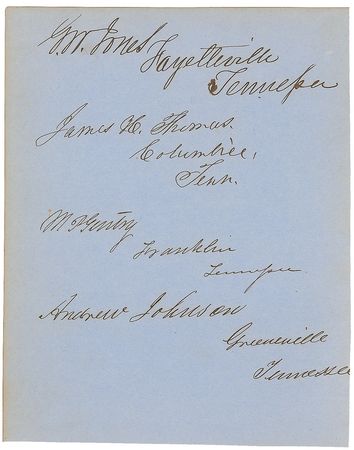 G. W. Jones
Fayetteville
Tennessee
James H. Thomas.
Columbia,
Tenn.
M P Gentry
Franklin
Tennessee
Andrew Johnson
Greeneville
Tennessee